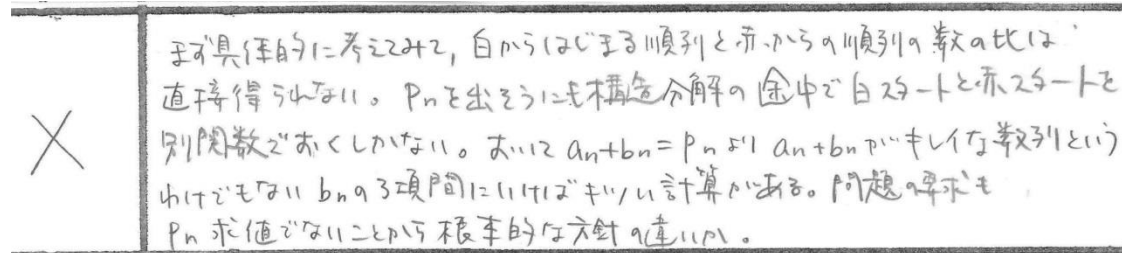 まず具体的に考えてみて,白からはじまる順列と赤からの順列の数の比は
直接得られない。Pnを出そうにも構造分解の途中で白スタートと赤スタートを
別関数でおくしかない。おいて an+bn=Pnより an+bnがキレイな数列という
わけでもない bnの3項間にいけばキツい計算がある。問題の要求も
Pn求値でないことから根本的な方針の違いか。